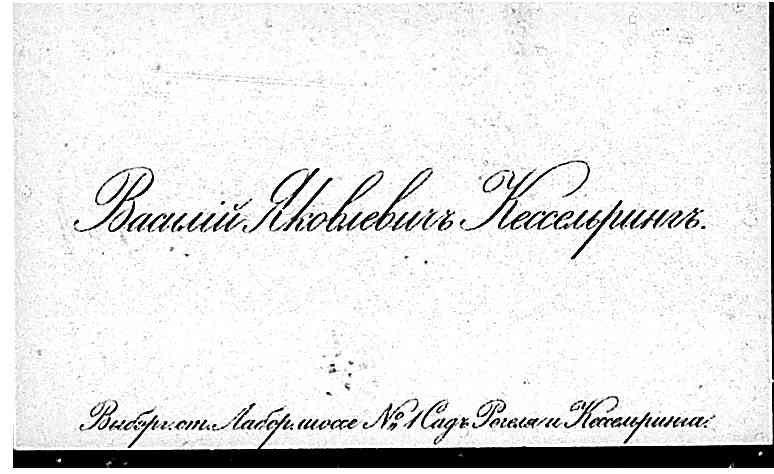 Василій Яковлевичъ Кессельрингъ.
Выборг. ст. Лабор. шоссе № 1 Садъ Регеля и Кессельринга.